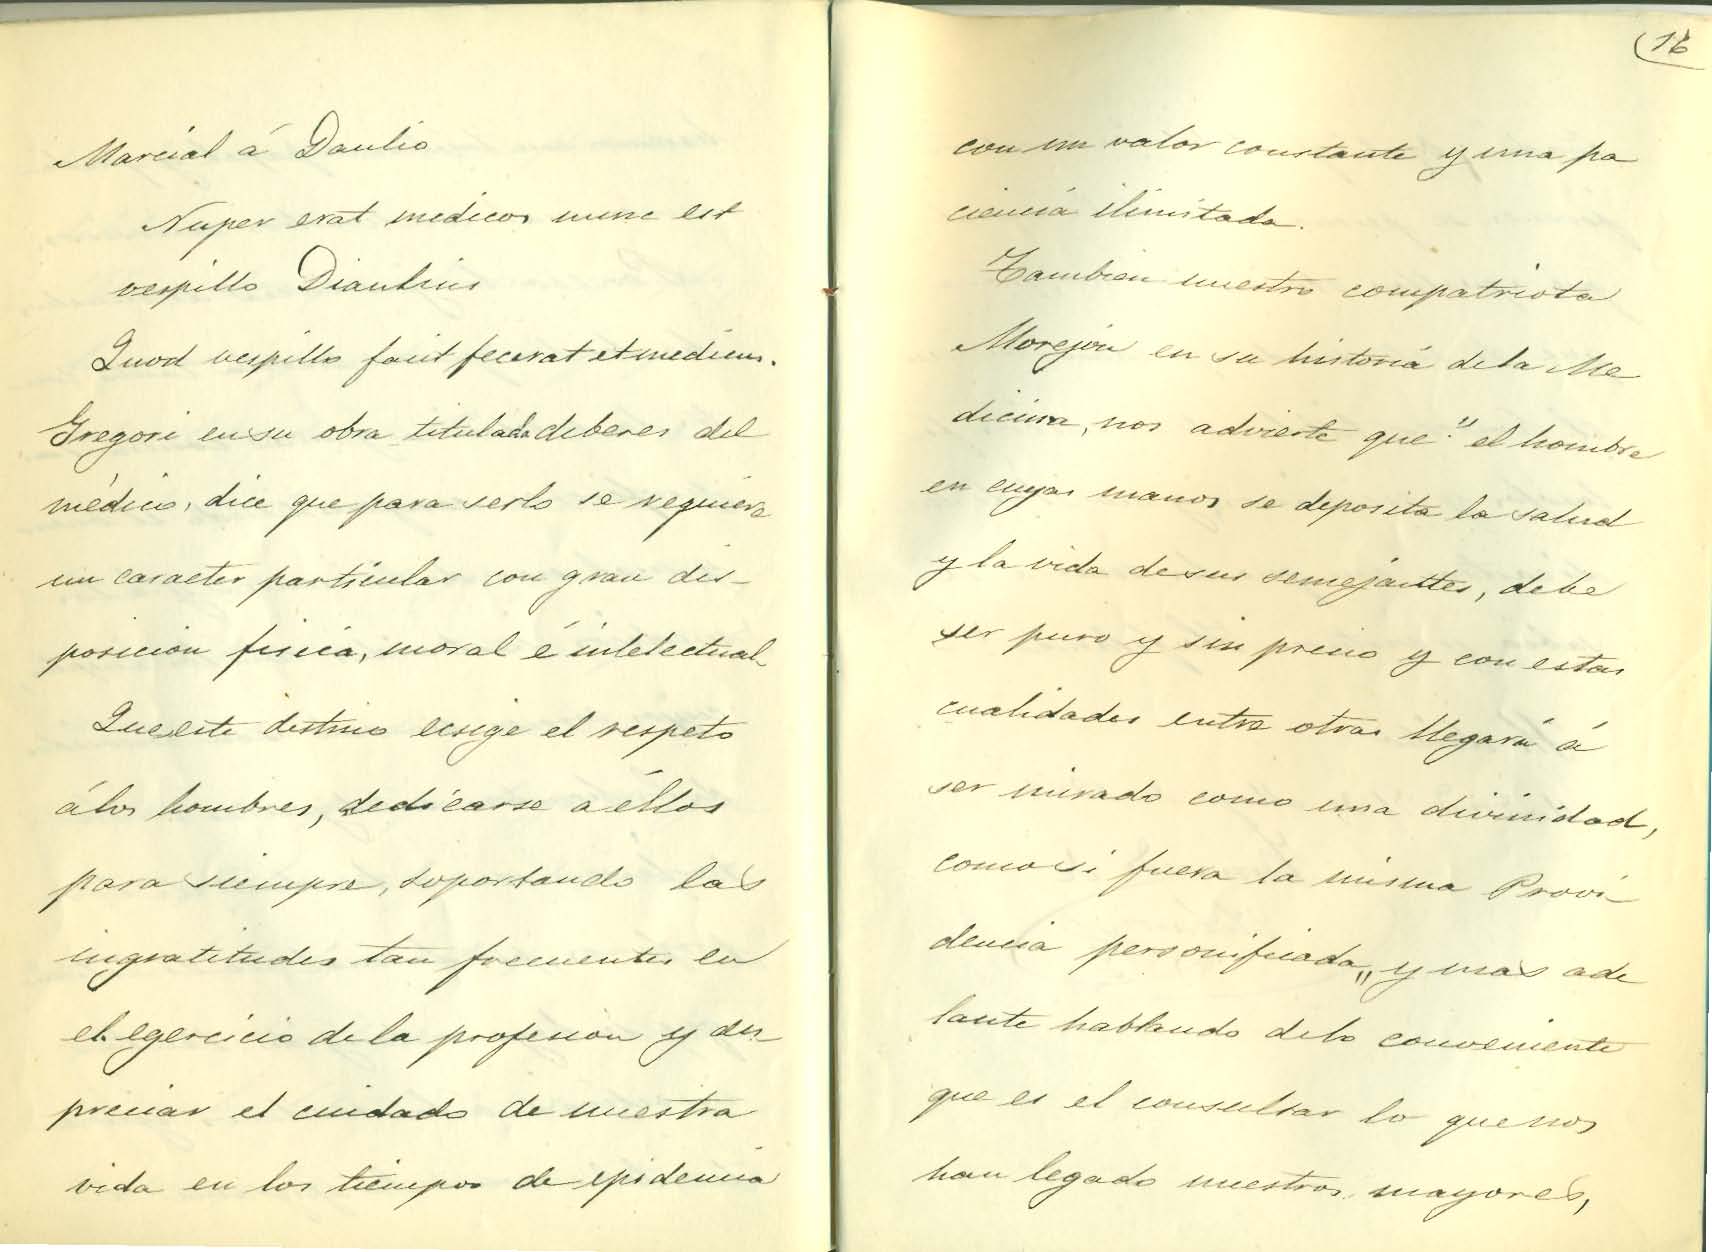 Marcial á Daulio
Nuper erat medicos nunc est
vespillo Diaulius
Quod vespillo facit fecerat et medicus.
Gregori en su obra titulada deberes del
médico, dice que para serlo se requiere
un caracter particular con gran dis-
posicion fisica, moral é intelectual
Que este destino ecsige el respeto
á los hombres, dedicarse a éllos
para siempre, soportando las
ingratitudes tan frecuentes en
el egercicio de la profesion y des-
preciar el cuidado de nuestra
vida en los tiempos de epidemia
16
con un valor constante y una pa
ciencia ilimitada.
Tambien nuestro compatriota
Morejón en su historia de la Me
dicina, nos advierte que "el hombre
en cuyas manos se deposita la salud
y la vida de sus semejantes, debe
ser puro y sin precio y con estas
cualidades entre otras llegará á
ser mirado como una divinidad,
como si fuera la misma Provi
dencia personificada" y mas ade
lante hablando de lo conveniente
que es el consultar lo que nos
han legado nuestros mayores,